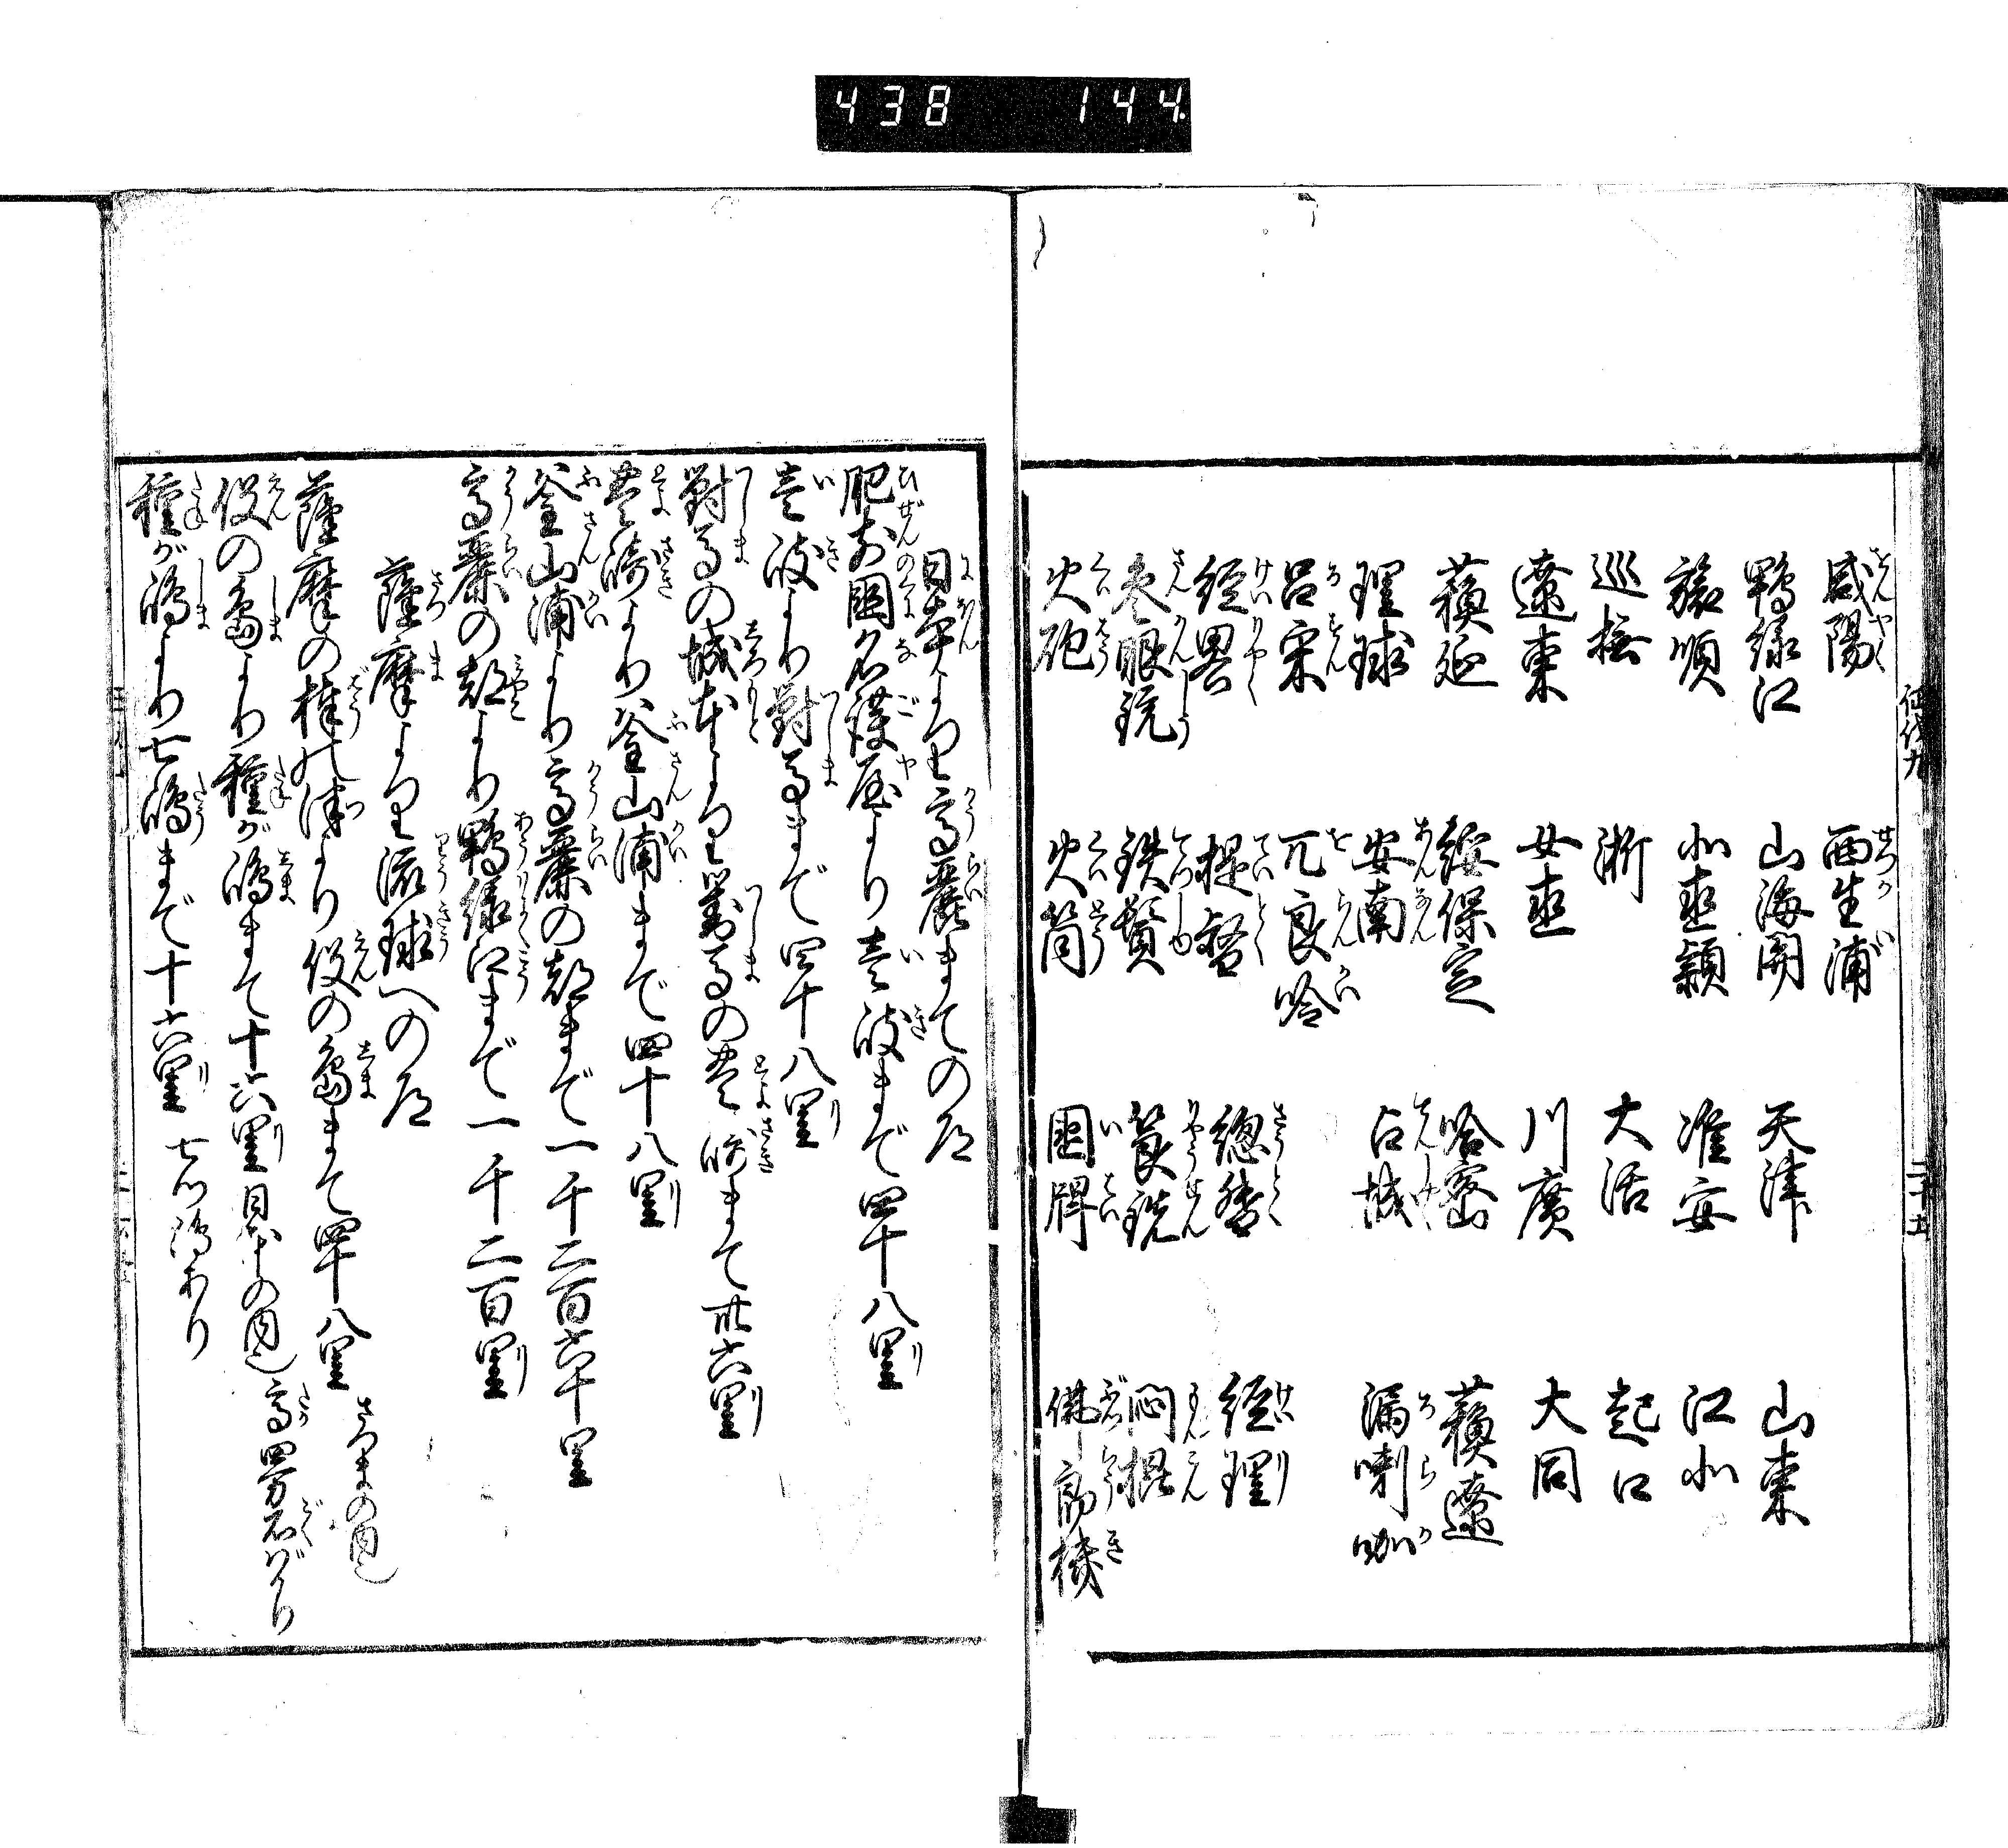 438 144
咸陽 西生浦
鴨緑江 山海関 天津 山東
旅順 北直穎 淮安 江北
巡撫 浙 大活 起口
遼東 女直 川廣 大同
蘓延 綏保定 哈密 蘓遼
琉球 安南 占城 満喇咖
呂宋 兀良哈
経畧 提督 總督 経理
参眼銃 鉄鬢 筤銑 悶棍
火砲 火筒 團牌 佛郎機
二十五
日本より高麗までの道
肥前国名護屋より壱岐まで四十八里
壱岐より對馬まで四十八里
對馬の城本より對馬の豊崎まで卅六里
豊崎より釜山浦まで四十八里
釜山浦より高麗の都まで一千二百六十里
高麗の都より鴨緑江まで一千二百里
薩摩より流球への道
薩摩の棒の津より役の島まで四十八里 さつまの内也
役の島より種が嶋まて十六里 日本の内也 高四万石ばかり
種が嶋より七嶋まで十六里 七ツ嶋あり